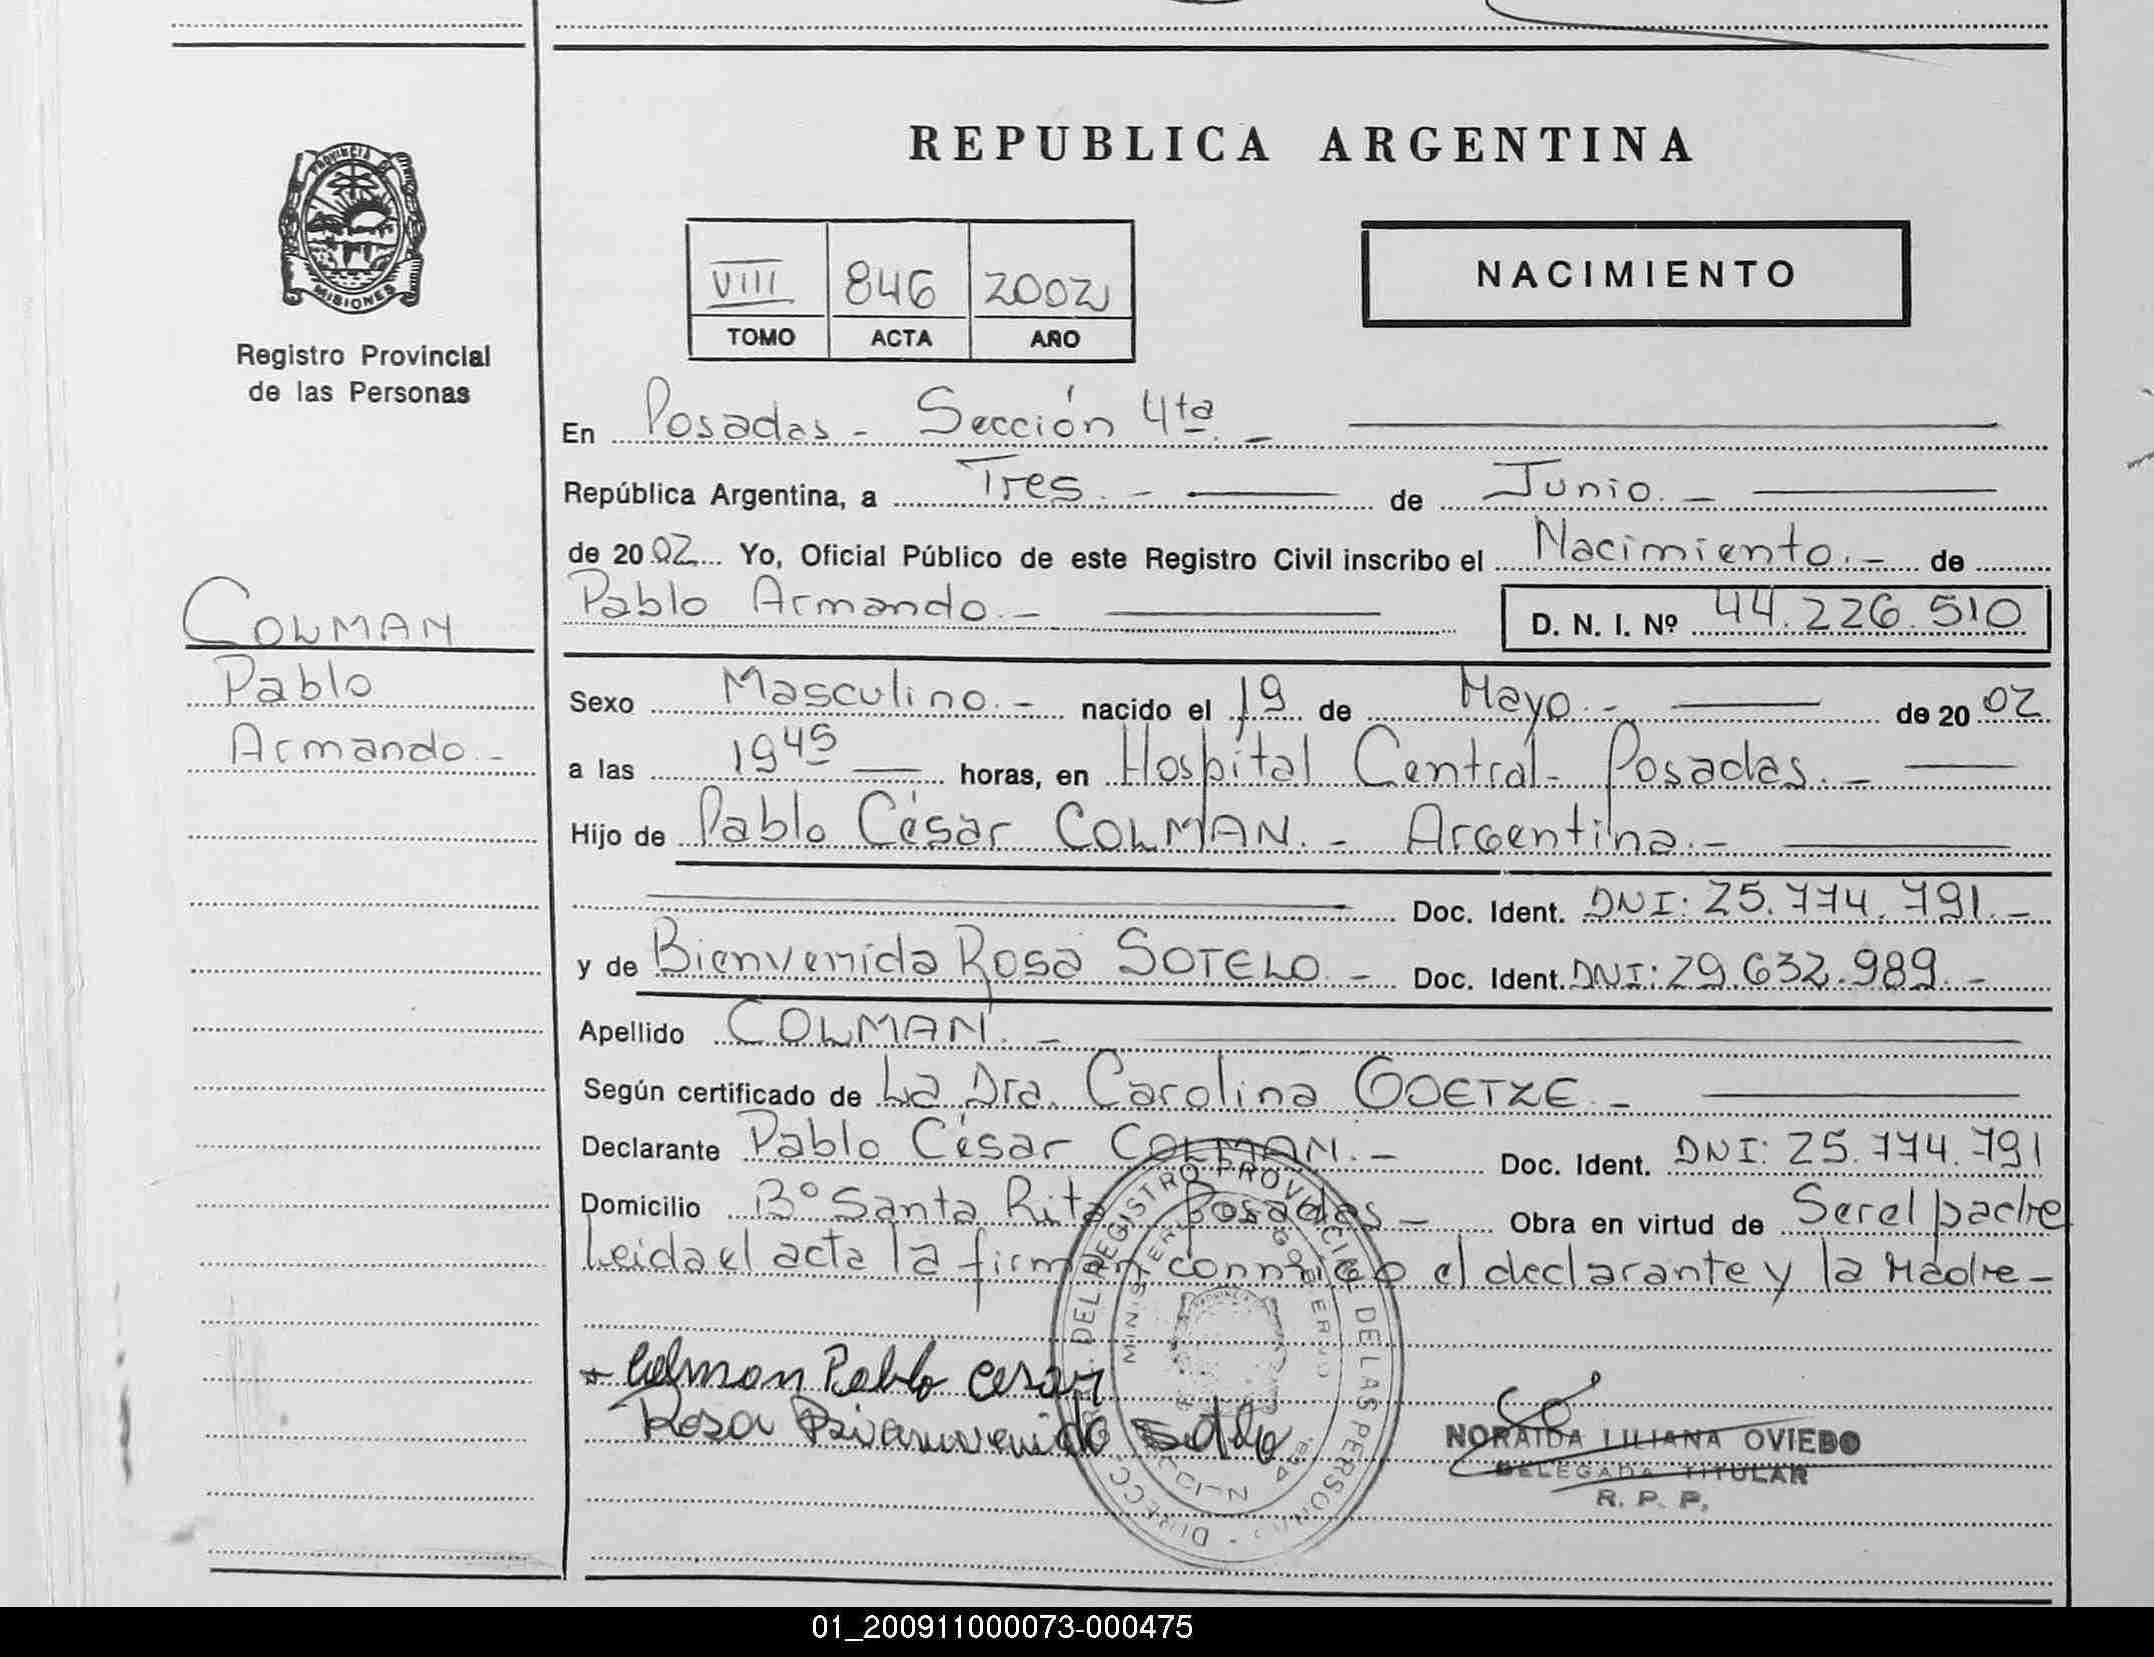 REPUBLICA ARGENTINA
PROVINCIA DE
MISIONES
Registro Provincial
de las Personas
VIII 846 2002
TOMO ACTA AÑO
NACIMIENTO
En Posadas - Sección 4ta. -
República Argentina, a Tres. - de Junio. -
de 2002 Yo, Oficial Público de este Registro Civil inscribo el Nacimiento. - de
Pablo Armando. - D. N. I. Nº 44.226.510
COLMAN
Pablo
Armando. -
Sexo Masculino. - nacido el 19 de Mayo. - de 2002
a las 19 45 horas, en Hospital Central - Posadas. -
Hijo de Pablo César COLMAN. - Argentina. -
Doc. Ident. DNI: 25.774.791. -
y de Bienvenida Rosa SOTELO. - Doc. Ident. DNI: 29.632.989. -
Apellido COLMAN. -
Según certificado de La Dra. Carolina GOETZE. -
Declarante Pablo César COLMAN. - Doc. Ident. DNI: 25.774.791
Domicilio Bº Santa Rita Posadas - Obra en virtud de Ser el padre
Leida el acta la firman conmigo el declarante y la Madre -
Colman Pablo Cesar
Rosa Bienvenida Sotelo
DEL REGISTRO PROVINCIAL DE LAS PERSONAS
NORAIDA LILIANA OVIEDO
DELEGADA TITULAR
R. P. P.
01_200911000073-000475